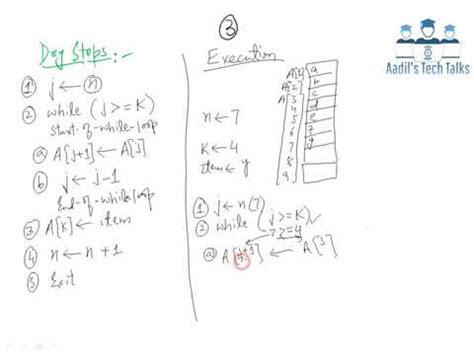 3
Aadil's Tech Talks
Dry Steps:-
① j ← n
② while (j >= K)
start-of-while-loop
ⓐ A[j+1] ← A[j]
ⓑ j ← j-1
End-of-while-loop
③ A[K] ← item
④ n ← n+1
⑤ Exit
Execution
A[1] a
A[2] b
A[3] c
4 d
5 e
6 f
7 g
8
9
n ← 7
K ← 4
item ← y
① j ← n (7)
② while (j >= K)
7 >= 4
ⓐ A[j+1] ← A[j]